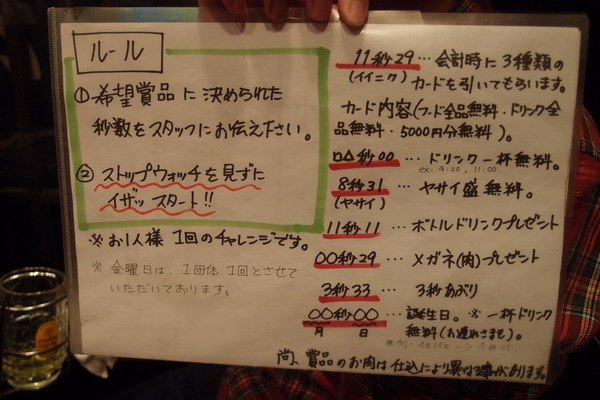 ルール
① 希望賞品に決められた
秒数をスタッフにお伝え下さい。
② ストップウォッチを見ずに
イザッ スタート!!
※お1人様 1回のチャレンジです。
※ 金曜日は、1団体1回とさせて
いただいております。
11秒29 … 会計時に3種類の
(イイニク) カードを引いてもらいます。
カード内容(フード全品無料・ドリンク全
品無料・5000円分無料)。
□△秒00 … ドリンク一杯無料。
ex. 9:00, 11:00
8秒31 … ヤサイ盛無料。
(ヤサイ)
11秒11 … ボトルドリンクプレゼント
○○秒29 … メガネ(肉)プレゼント
3秒33 … 3秒あぶり
○○秒○○ … 誕生日。※一杯ドリンク
月 日 無料(お連れさまも)。
尚、賞品のお肉は仕込により異なる事があります。